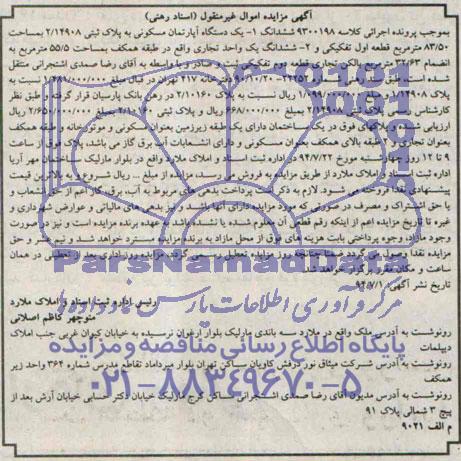 آگهی مزایده اموال غیرمنقول (اسناد رهنی)
بموجب پرونده اجرائی کلاسه ۹۳۰۰۱۹۸ ششدانگ ۱- یک دستگاه آپارتمان مسکونی به پلاک ثبتی ۲/۱۴۹۰۸ بمساحت
۸۳/۵۰ مترمربع قطعه اول تفکیکی و ۲- ششدانگ یک واحد تجاری واقع در طبقه همکف بمساحت ۵۵/۵ مترمربع به
انضمام ۳۲/۶۳ مترمربع بالکن تجاری قطعه دوم تفکیکی ثبتی
صادره و باواسطه به آقای رضا صمدی اشتجرانی منتقل
شده است
دفترخانه ۴۱۷ تهران در قبال مبلغ ۱/۲۸۱/۰۰۰/۰۰۰ ریال نسبت به
پلاک ۲/۱۴۹۰۸ و مبلغ ۶۶۸/۰۰۰/۰۰۰ ریال نسبت به پلاک ۲/۱۰۱۶۰ در رهن بانک پارسیان قرار گرفته و طبق نظر
کارشناس رسمی پلاک ثبتی ۲/۱۴۹۰۸ بمبلغ
ریال و پلاک ثبتی ۲/۱۰۱۶۰ بمبلغ
ریال
ارزیابی شده و پلاکهای فوق در یک ساختمان دارای یک طبقه زیرزمین بعنوان مسکونی و موتورخانه و طبقه همکف
بعنوان تجاری و
طبقه بالای همکف بعنوان مسکونی و دارای انشعابات آب برق گاز می باشد. پلاک فوق از ساعت
۹ تا ۱۲ روز چهارشنبه مورخ ۹۴/۷/۲۲ در اداره ثبت اسناد و املاک ملارد واقع در بلوار مارلیک ساختمان مهر آریا
اداره ثبت اسناد و املاک ملارد از طریق مزایده به فروش می رسد، مزایده از مبلغ ... ریال شروع و به بالاترین قیمت
پیشنهادی نقدا فروخته می شود. لازم به ذکر است پرداخت بدهی های مربوط به آب، برق، گاز اعم از حق انشعاب و
یا حق اشتراک و مصرف در صورتی که مورد مزایده دارای آنها باشد و نیز بدهی های مالیاتی و عوارض شهرداری و
غیره تا تاریخ مزایده اعم از اینکه رقم قطعی آن معلوم شده یا نشده باشد به عهده برنده مزایده است و نیز در صورت
وجود مازاد، وجوه پرداختی بابت هزینه های فوق از محل مازاد به برنده مزایده مسترد خواهد شد و نیم عشر و حق
مزایده نقدا وصول می گردد. ضمنا چنانچه روز مزایده تعطیل رسمی گردد، مزایده روز اداری بعد از تعطیلی در همان
ساعت و مکان مقرر برگزار خواهد شد.
تاریخ نشر آگهی: ۹۴/۷/۱
رئیس اداره ثبت اسناد و املاک ملارد
منوچهر کاظم اصلانی
رونوشت به آدرس ملک واقع در ملارد سه باندی مارلیک بلوار ارغوان نرسیده به خیابان کیوان غربی جنب املاک
دیپلمات
رونوشت به آدرس شرکت میثاق نور درفش کاویان ساکن تهران بلوار میرداماد تقاطع مدرس شماره ۳۶۴ واحد زیر
همکف
رونوشت به آدرس مدیون آقای رضا صمدی اشتجرانی ساکن کرج مارلیک خیابان دکتر حسابی خیابان آرش بعد از
پیچ ۳ شمالی پلاک ۹۱
م الف ۹۰۲۱
ParsNamadData
مرکز فرآوری اطلاعات پارس نماد داده ها
پایگاه اطلاع رسانی مناقصه و مزایده
۰۲۱-۸۸۳۴۹۶۷۰-۵